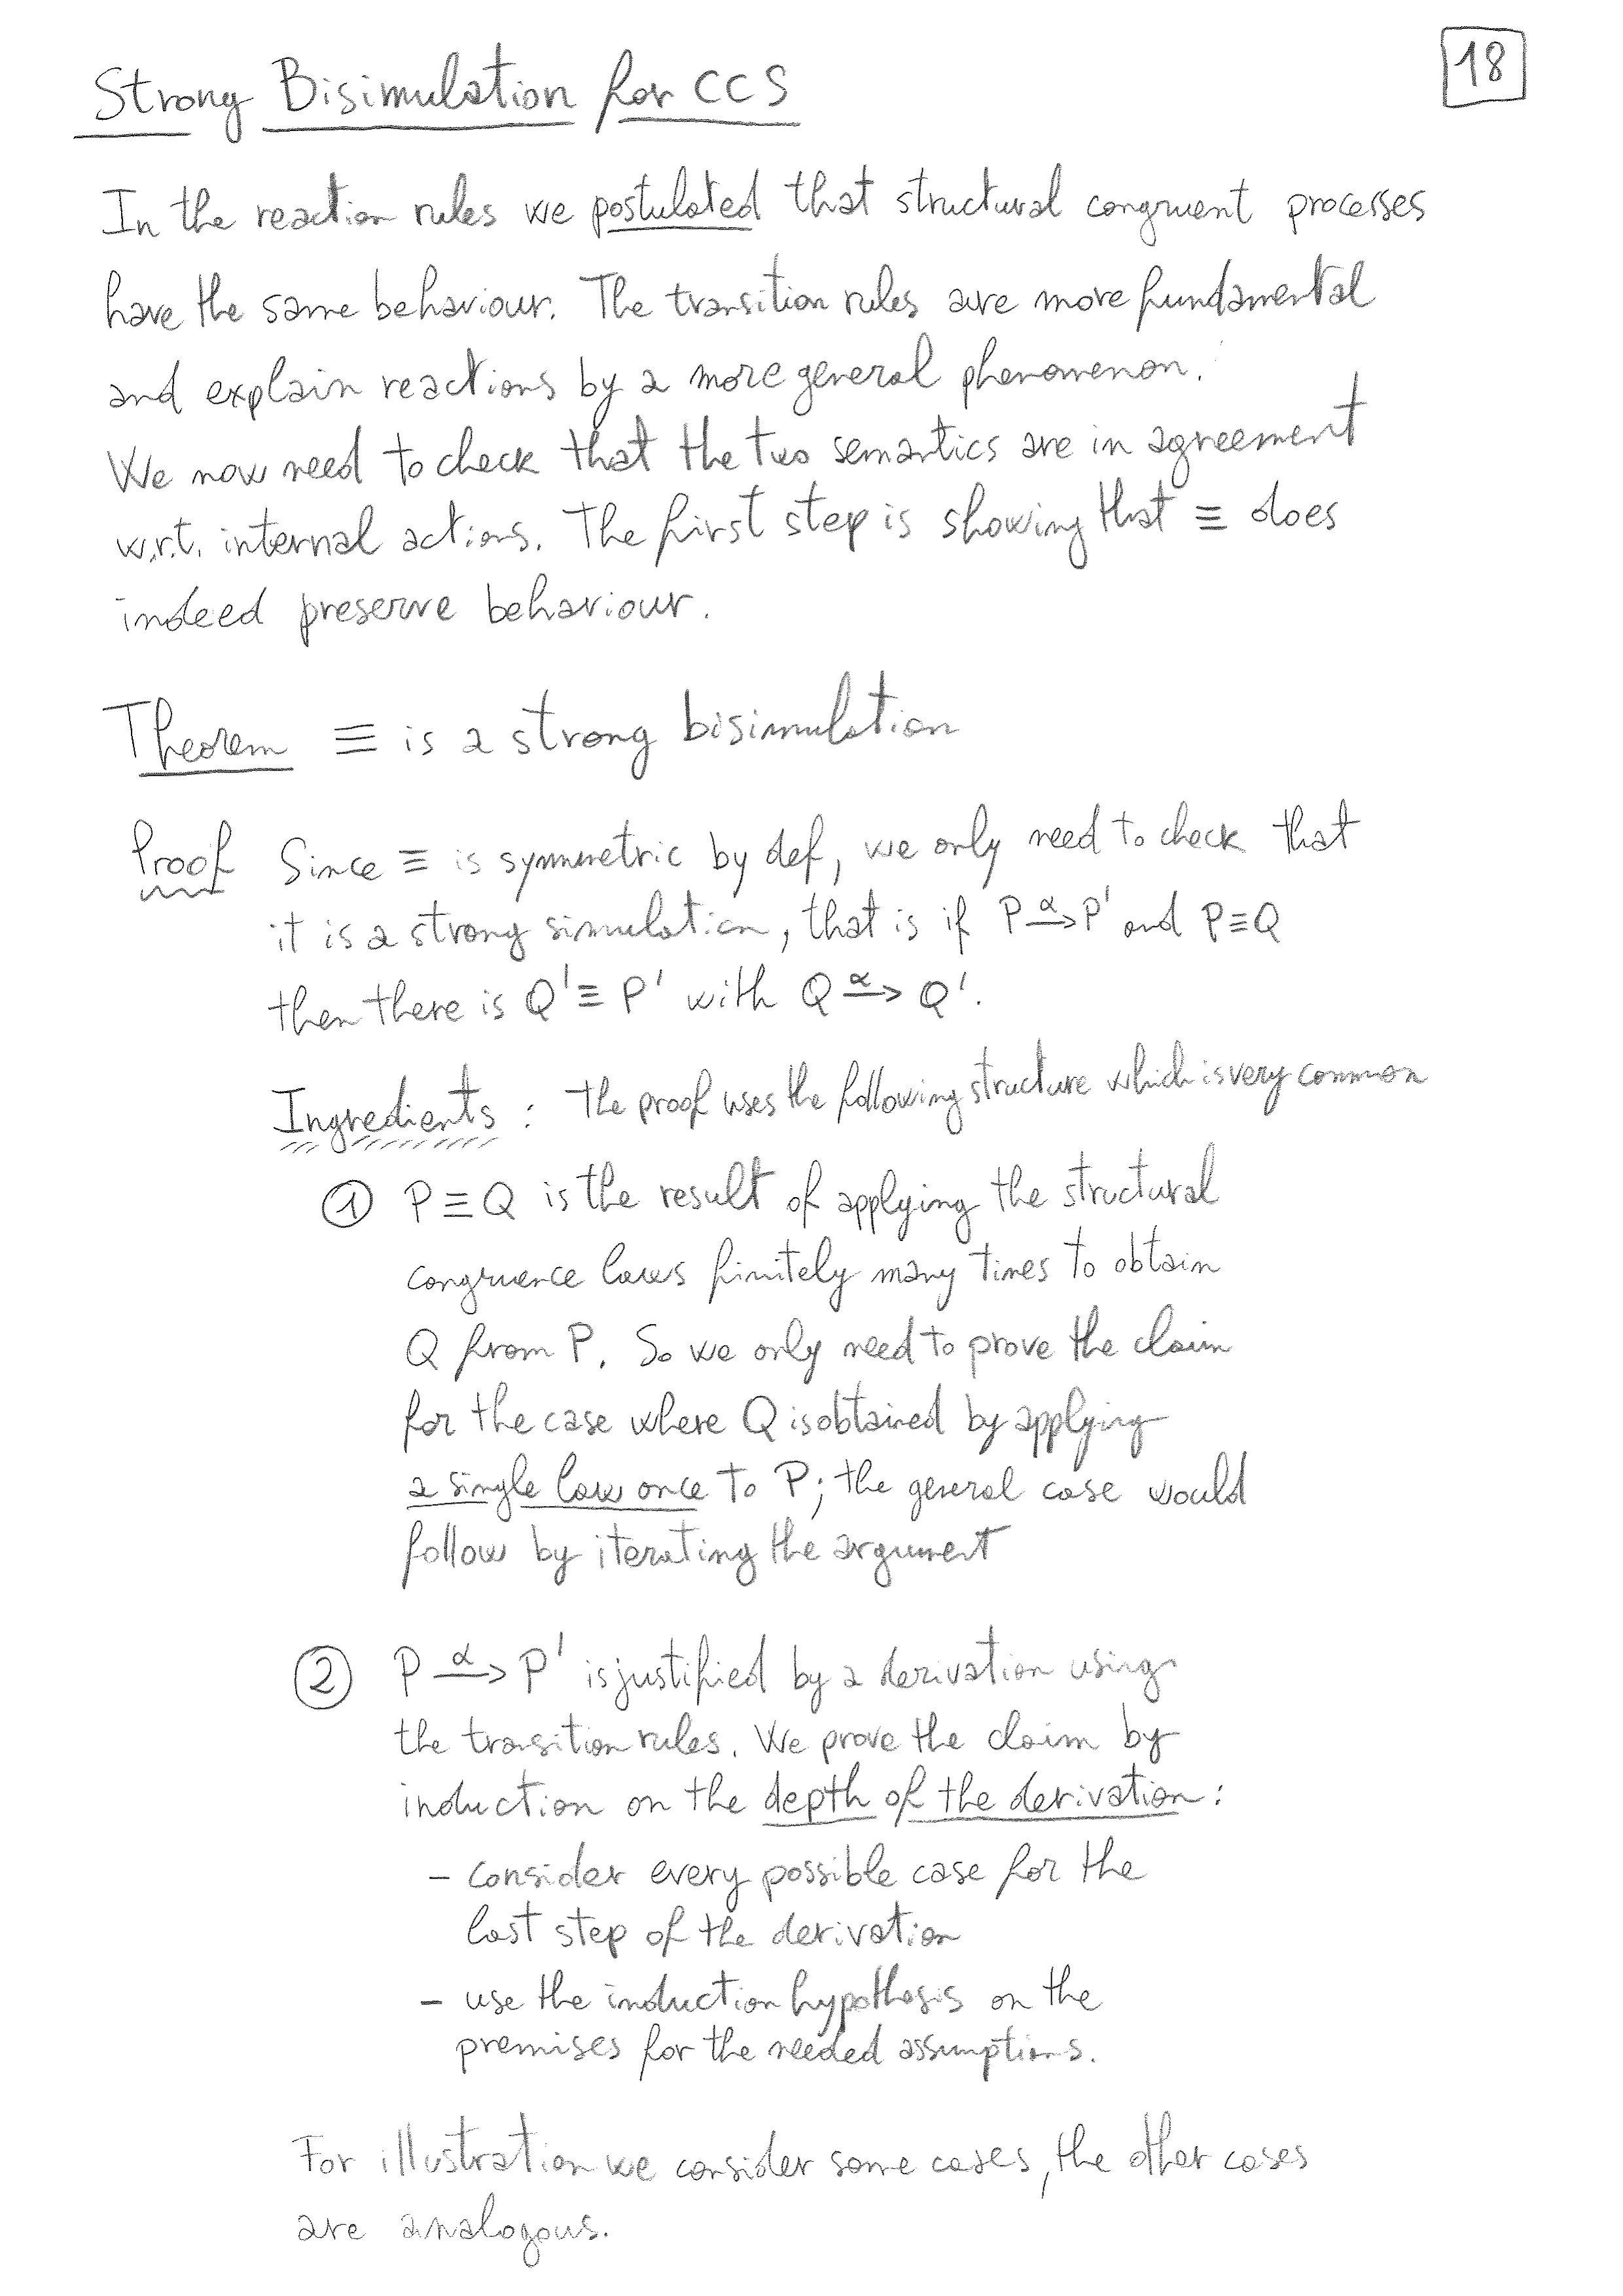 Strong Bisimulation for CCS
18
In the reaction rules we postulated that structural congruent processes
have the same behaviour. The transition rules are more fundamental
and explain reactions by a more general phenomenon.
We now need to check that the two semantics are in agreement
w.r.t. internal actions. The first step is showing that ≡ does
indeed preserve behaviour.
Theorem ≡ is a strong bisimulation
Proof Since ≡ is symmetric by def, we only need to check that
it is a strong simulation, that is if P –α→ P' and P≡Q
then there is Q'≡ P' with Q –α→ Q'.
Ingredients : The proof uses the following structure which is very common
① P≡Q is the result of applying the structural
congruence laws finitely many times to obtain
Q from P. So we only need to prove the claim
for the case where Q is obtained by applying
a single law once to P; the general case would
follow by iterating the argument
② P –α→ P' is justified by a derivation using
the transition rules. We prove the claim by
induction on the depth of the derivation:
– consider every possible case for the
last step of the derivation
– use the induction hypothesis on the
premises for the needed assumptions.
For illustration we consider some cases, the other cases
are analogous.